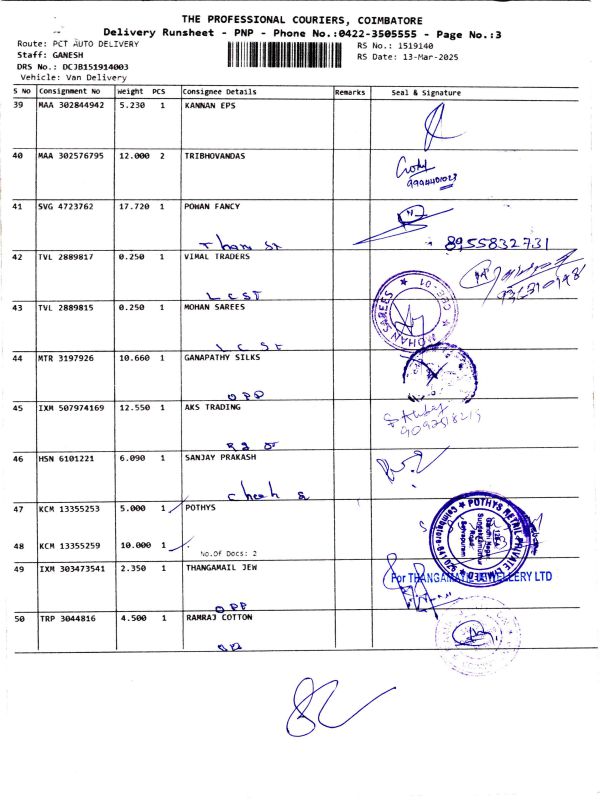 THE PROFESSIONAL COURIERS, COIMBATORE
Delivery Runsheet - PNP - Phone No.:0422-3505555 - Page No.:3
Route: PCT AUTO DELIVERY
Staff: GANESH
DRS No.: DCJB151914003
Vehicle: Van Delivery
RS No.: 1519140
RS Date: 13-Mar-2025
S No Consignment No Weight PCS Consignee Details Remarks Seal & Signature
39 MAA 302844942 5.230 1 KANNAN EPS
40 MAA 302576795 12.000 2 TRIBHOVANDAS
9994401023
41 SVG 4723762 17.720 1 POWAN FANCY
8955832731
42 TVL 2889817 0.250 1 VIMAL TRADERS
L C S T
43 TVL 2889815 0.250 1 MOHAN SAREES
MOHAN SAREES ★ CBE-01 ★
L C S T
44 MTR 3197926 10.660 1 GANAPATHY SILKS
OPP
45 IXM 507974169 12.550 1 AKS TRADING
46 HSN 6101221 6.090 1 SANJAY PRAKASH
47 KCM 13355253 5.000 1 POTHYS
POTHYS RETAIL PRIVATE LIMITED
48 KCM 13355259 10.000 1
No.Of Docs: 2
49 IXM 303473541 2.350 1 THANGAMAIL JEW
For THANGAMAYIL JEWELLERY LTD
OPP
50 TRP 3044816 4.500 1 RAMRAJ COTTON